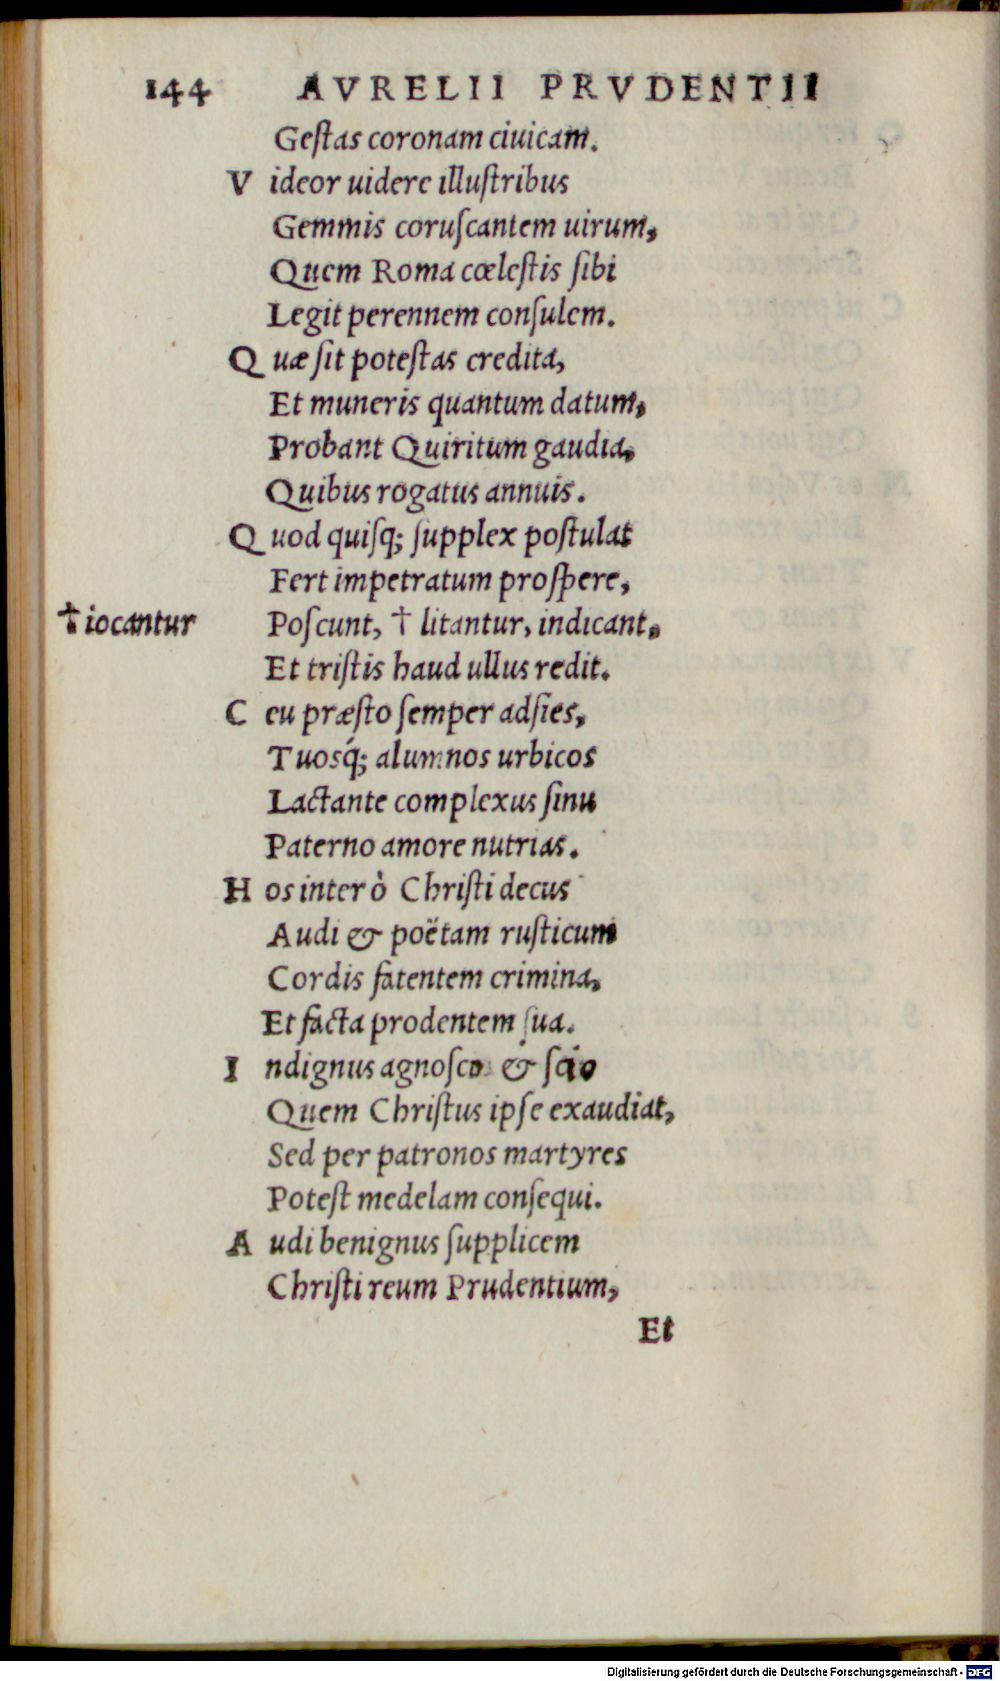 144 AVRELII PRVDENTII
Geſtas coronam ciuicam.
V ideor uidere illuſtribus
Gemmis coruſcantem uirum,
Quem Roma cœleſtis ſibi
Legit perennem conſulem.
Q uæ ſit poteſtas credita,
Et muneris quantum datum,
Probant Quiritum gaudia,
Quibus rogatus annuis.
Q uod quiſq; ſupplex poſtulat
Fert impetratum proſpere,
†iocantur Poſcunt, † litantur, indicant,
Et triſtis haud ullus redit.
C eu præſto ſemper adſies,
Tuosq́; alumnos urbicos
Lactante complexus ſinu
Paterno amore nutrias.
H os inter ò Chriſti decus
Audi & poëtam ruſticum
Cordis fatentem crimina,
Et facta prodentem ſua.
I ndignus agnoſco & ſcio
Quem Chriſtus ipſe exaudiat,
Sed per patronos martyres
Poteſt medelam conſequi.
A udi benignus ſupplicem
Chriſti reum Prudentium,
Et
Digitalisierung gefördert durch die Deutsche Forschungsgemeinschaft - DFG